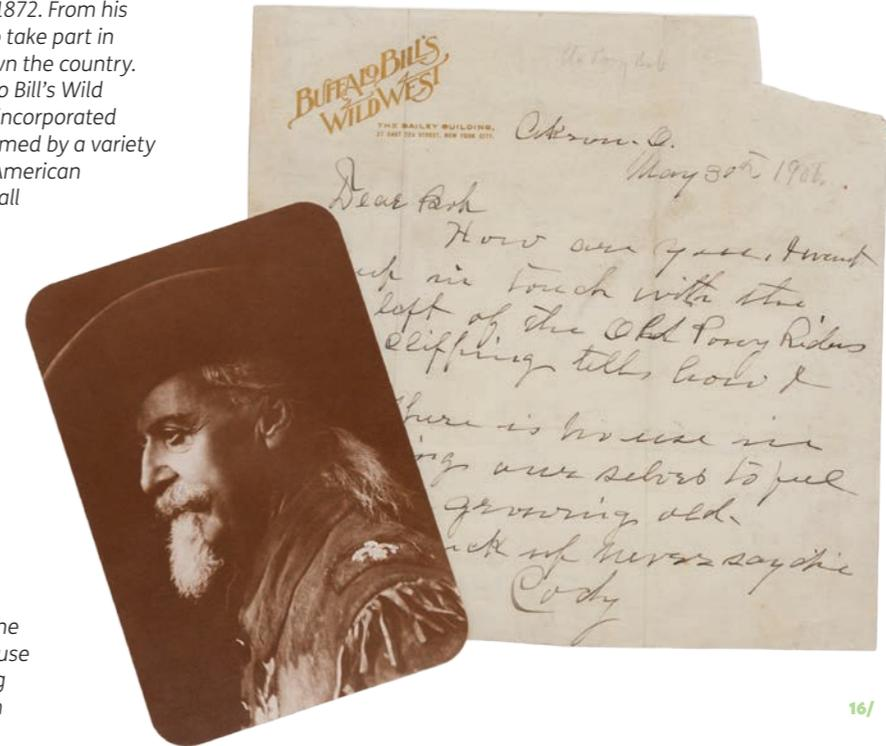 1872. From his
take part in
wn the country.
o Bill's Wild
incorporated
med by a variety
American
all
BUFFALO BILL'S
WILD WEST
THE BAILEY BUILDING,
NEW YORK CITY.
Akron. O.
May 30th 190
Dear Bob
How are you, I want
in touch with the
left of the Old Pony Riders
clipping tells how I
there is no use in
ourselves to feel
growing old.
of never say die
Cody
use
16/